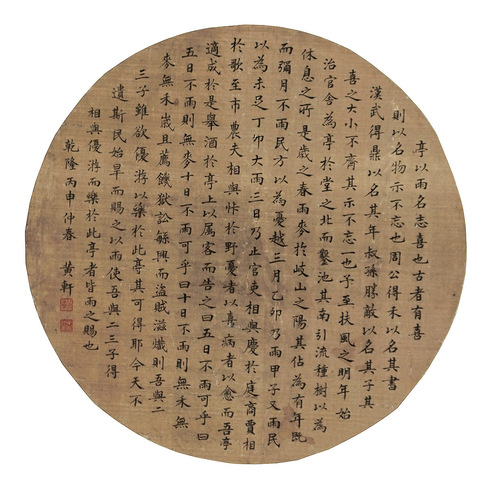 亭以雨名志喜也古者有喜
則以名物示不忘也周公得禾以名其書
漢武得鼎以名其年叔孫勝敵以名其子其
喜之大小不齊其示不忘一也予至扶風之明年始
治官舍為亭於堂之北而鑿池其南引流種樹以為
休息之所是歲之春雨麥於岐山之陽其占為有年既
而彌月不雨民方以為憂越三月乙卯乃雨甲子又雨民
以為未足丁卯大雨三日乃止官吏相與慶於庭商賈相
於歌至市農夫相與忭於野憂者以喜病者以愈而吾亭
適成於是舉酒於亭上以属客而告之曰五日不雨可乎曰
五日不雨則無麥十日不雨可乎曰十日不雨則無禾無
麥無禾歲且薦饑獄訟繇興而盜賊滋熾則吾與二
三子雖欲優游以樂於此亭其可得耶今天不
遺斯民始旱而賜之以雨使吾與二三子得
相與優游而樂於此亭者皆雨之賜也
乾隆丙申仲春 黄軒